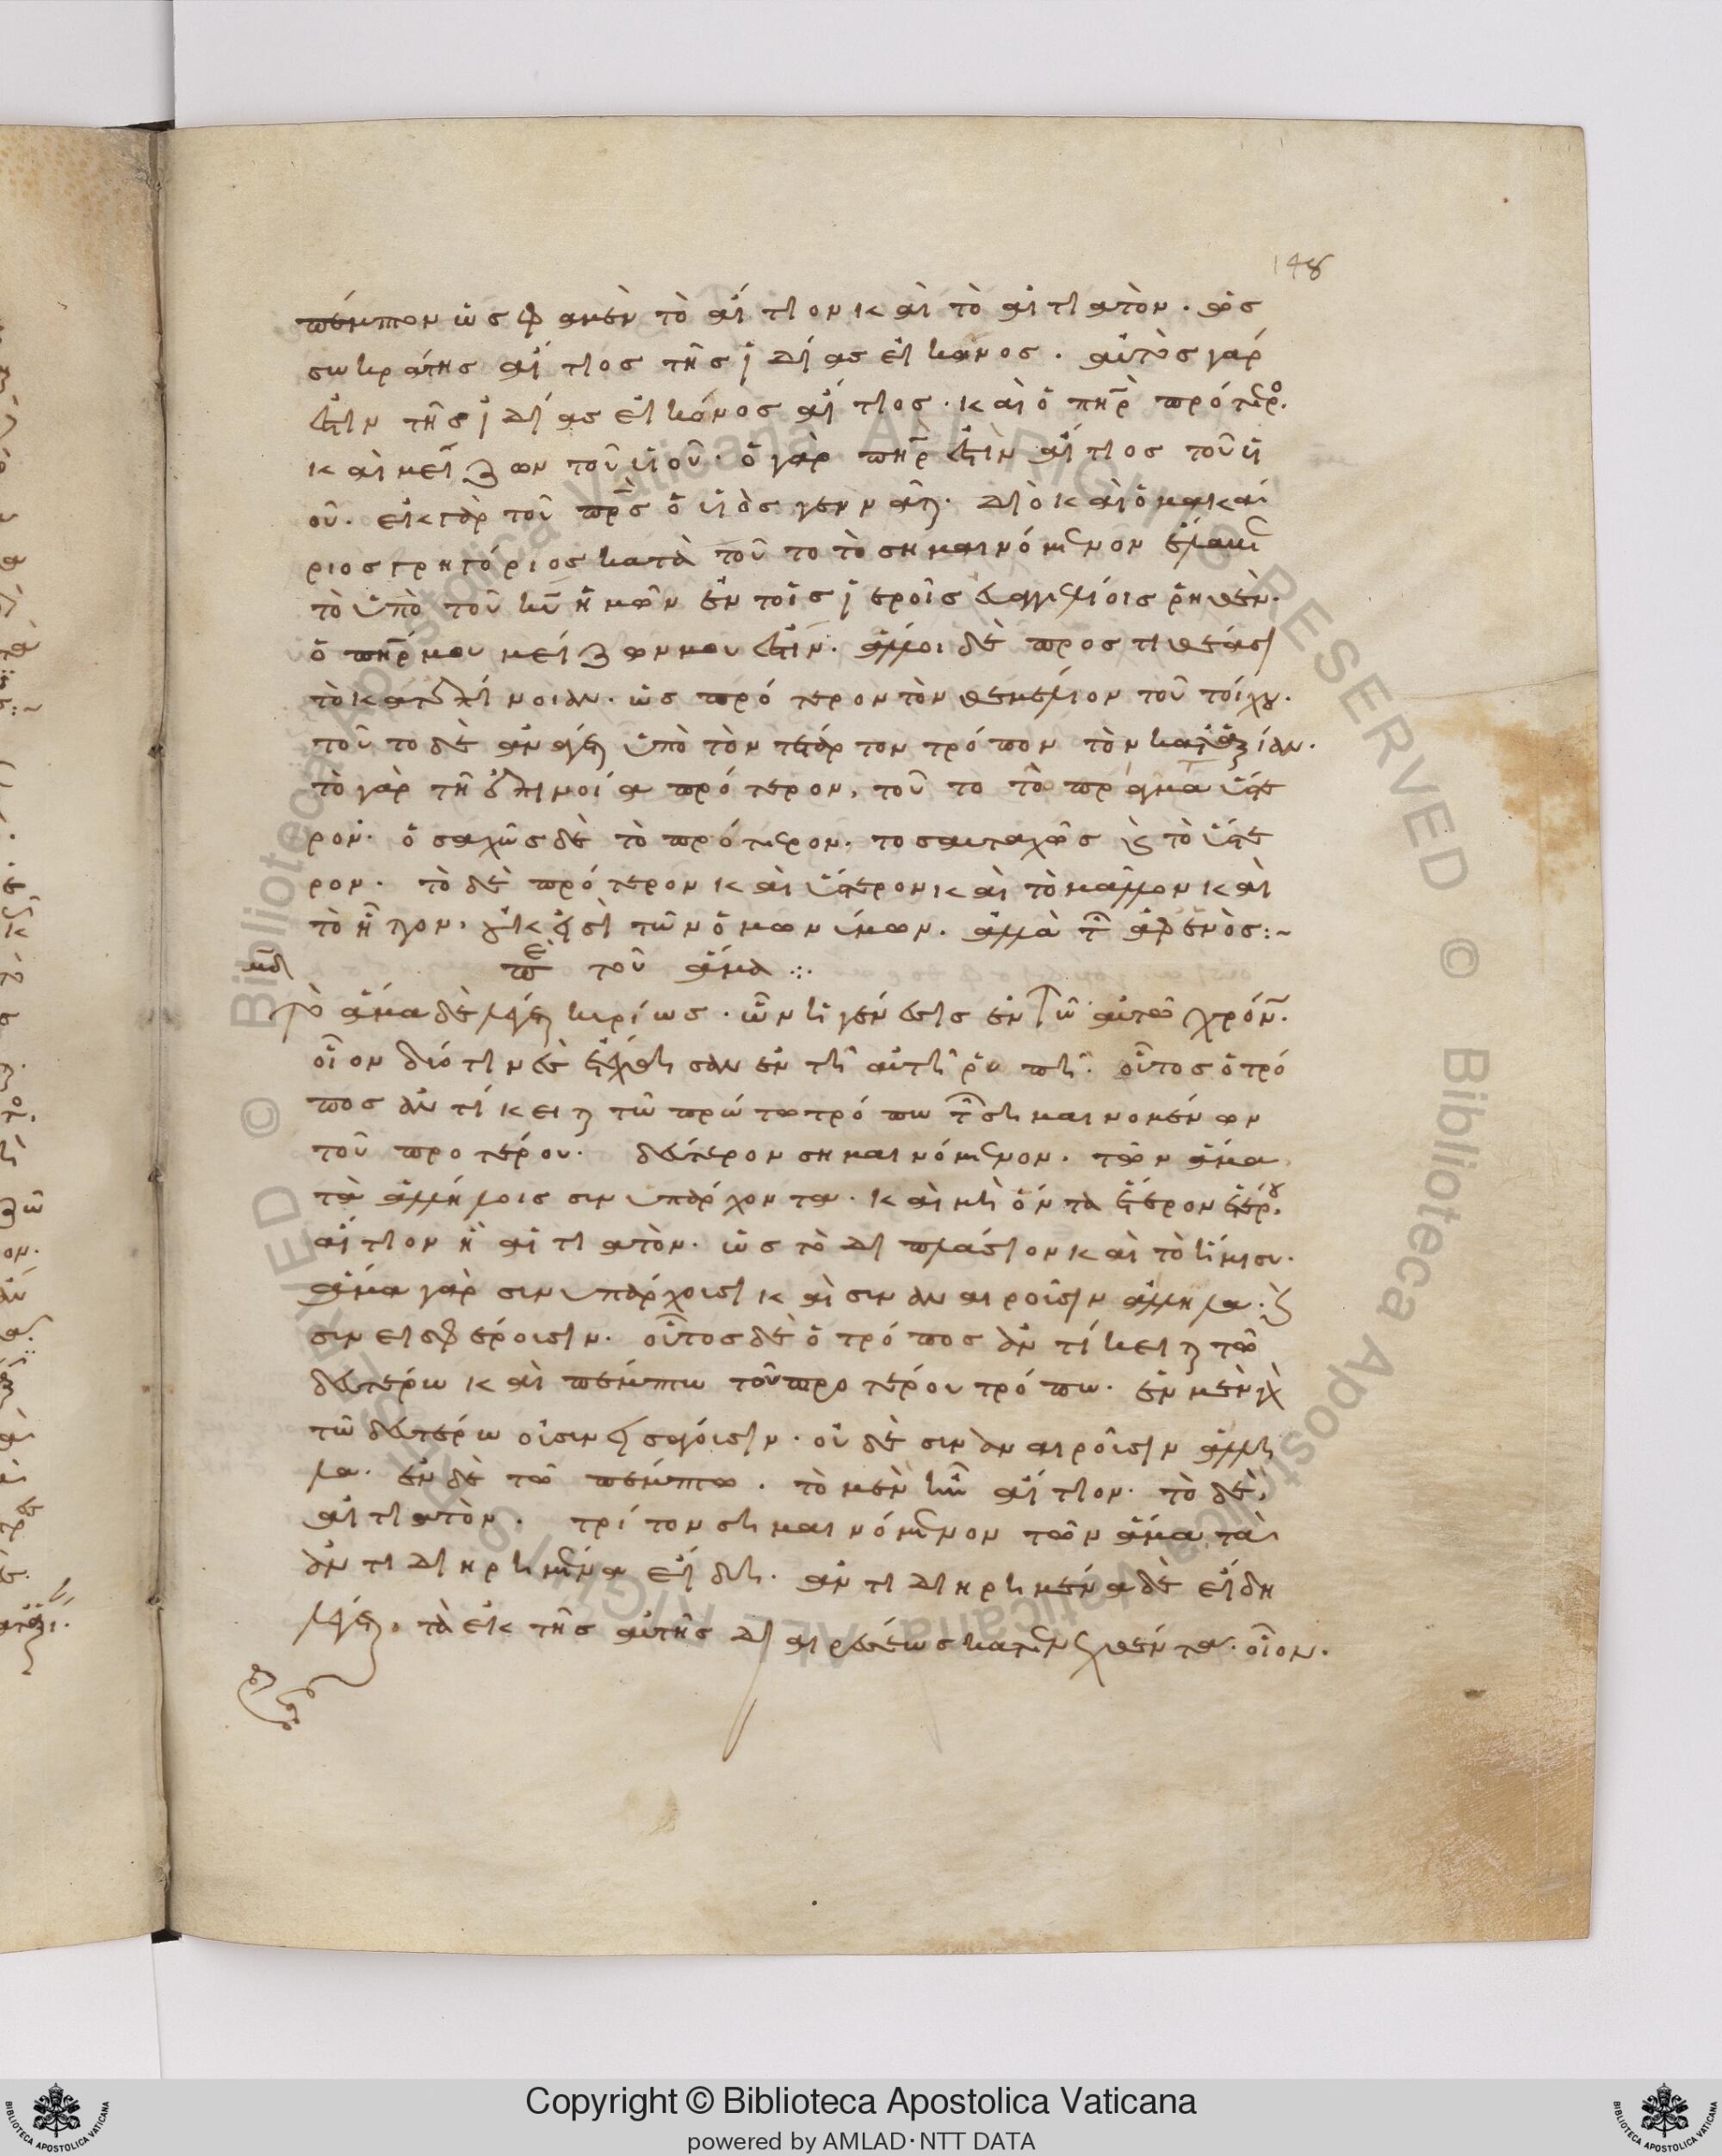 148
πέμπτον ὥς φαμεν τὸ αἴτιον καὶ τὸ αἰτιατὸν. ὡς
σωκράτης αἴτιος τῆς ἰδίας εἰκόνος. αὐτὸς γάρ
ἐστιν τῆς ἰδίας εἰκόνος αἴτιος. καὶ ὁ πηρ πρότερο
καὶ μείζων τοῦ υἱοῦ. ὁ γὰρ πηρ ἐστὶν αἴτιος τοῦ υἱ
οῦ. ἐκ γὰρ τοῦ πρς ὁ υἱὸς γεννᾶται. διὸ καὶ ὁ μακά
ριος γρηγόριος κατὰ τοῦτο τὸ σημαινόμενον
τὸ ὑπὸ τοῦ κυ ἡμῶν ἐν τοῖς ἱεροῖς εὐαγγελίοις ῥηθὲν.
ὁ πηρ μου μείζων μου ἐστίν. ἄλλοι δὲ προστιθέασι
τὸ κατ' ἐπίνοιαν. ὡς πρότερον τὸν θεμέλιον τοῦ τοίχου.
τοῦτο δὲ ἀνάγεται ὑπὸ τὸν τέταρτον τρόπον τὸν κατ' ἀξίαν.
τὸ γὰρ τῆ ἐπινοία πρότερον, τοῦτο τῶ πράγματι ὕστε
ρον. ὁσαχῶς δὲ τὸ πρότερον. τοσαυταχῶς καὶ τὸ ὕστε
ρον. τὸ δὲ πρότερον καὶ ὕστερον καὶ τὸ μᾶλλον καὶ
τὸ ἧττον, οὐκ ἔστι τῶν ὁμωνύμων. ἀλλὰ τῶν ἀφ' ἑνὸς:~
πε τοῦ ἅμα .:.
Τὸ ἅμα δὲ λέγεται κυρίως. ὧν ἡ γένεσις ἐν τῶ αὐτῶ χρόν.
οἷον δύο τινὲς ἐτέχθησαν ἐν τῆ αὐτῆ ῥοπῆ. οὗτος ὁ τρό
πος ἀντίκειται τῶ πρώτω τρόπω τῶν σημαινομένων
τοῦ προτέρου. δεύτερον σημαινόμενον. τῶν ἅμα
τὰ ἀλλήλοις συνυπάρχοντα. καὶ μὴ ὄντα ἕτερον ἑτέρου
αἴτιον ἢ αἰτιατὸν. ὡς τὸ διπλάσιον καὶ τὸ ἥμισυ.
ἅμα γὰρ συνυπάρχουσι καὶ συναναιροῦσιν ἄλληλα. καὶ
συνεισφέρουσιν. οὗτος δὲ ὁ τρόπος ἀντίκειται τῶ
δευτέρω καὶ πέμπτω τοῦ προτέρου τρόπω. ἐν μὲν γὰρ
τῶ δευτέρω οὐ συνεισάγουσιν. οὐδὲ συναναιροῦσιν ἄλλη
λα. ἐν δὲ τῶ πέμπτω. τὸ μὲν ἦν αἴτιον. τὸ δὲ,
αἰτιατὸν. τρίτον σημαινόμενον τῶν ἅμα τὰ
ἀντιδιηρημένα εἴδη. ἀντιδιηρημένα δὲ εἴδη
λέγεται, τὰ ἐκ τῆς αὐτῆς διαιρέσεως κατενεχθέντα. οἷον.
Copyright © Biblioteca Apostolica Vaticana
powered by AMLAD·NTT DATA